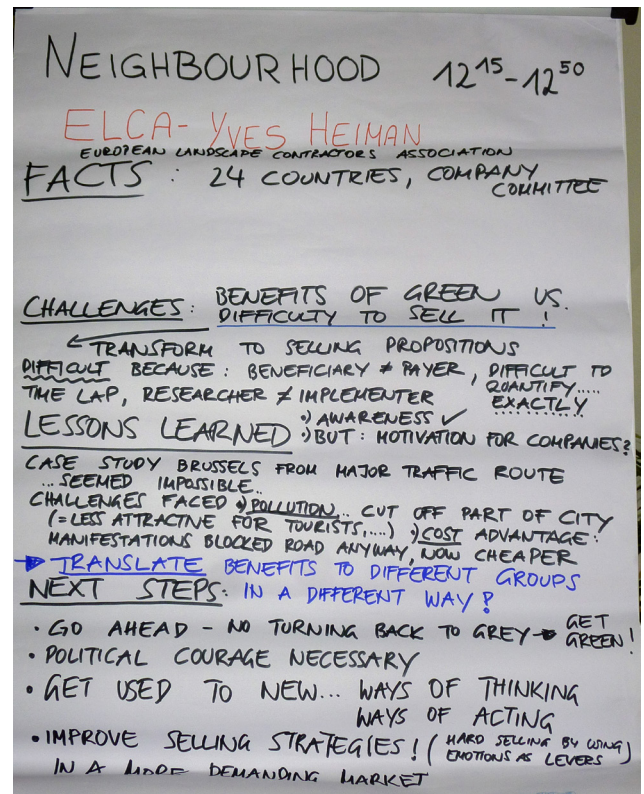 NEIGHBOURHOOD 12 15 - 12 50
ELCA - YVES HEIMAN
EUROPEAN LANDSCAPE CONTRACTORS ASSOCIATION
FACTS : 24 COUNTRIES, COMPANY
COMMITTEE
CHALLENGES: BENEFITS OF GREEN VS.
DIFFICULTY TO SELL IT !
← TRANSFORM TO SELLING PROPOSITIONS
DIFFICULT BECAUSE : BENEFICIARY ≠ PAYER, DIFFICULT TO
QUANTIFY.....
TIME LAP, RESEARCHER ≠ IMPLEMENTER EXACTLY
LESSONS LEARNED •) AWARENESS ✓
•) BUT : MOTIVATION FOR COMPANIES?
CASE STUDY BRUSSELS FROM MAJOR TRAFFIC ROUTE
... SEEMED IMPOSSIBLE..
CHALLENGES FACED •) POLLUTION... CUT OFF PART OF CITY
(= LESS ATTRACTIVE FOR TOURISTS,....) •) COST ADVANTAGE :
MANIFESTATIONS BLOCKED ROAD ANYWAY, NOW CHEAPER
→ TRANSLATE BENEFITS TO DIFFERENT GROUPS
NEXT STEPS: IN A DIFFERENT WAY?
• GO AHEAD - NO TURNING BACK TO GREY → GET
GREEN!
• POLITICAL COURAGE NECESSARY
• GET USED TO NEW... WAYS OF THINKING
WAYS OF ACTING
• IMPROVE SELLING STRATEGIES! (HARD SELLING BY USING
EMOTIONS AS LEVERS)
IN A MORE DEMANDING MARKET